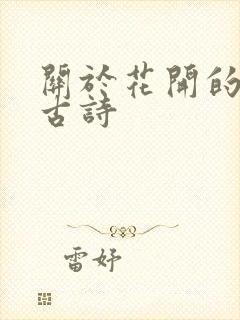 關於花開的
古詩
雷妤